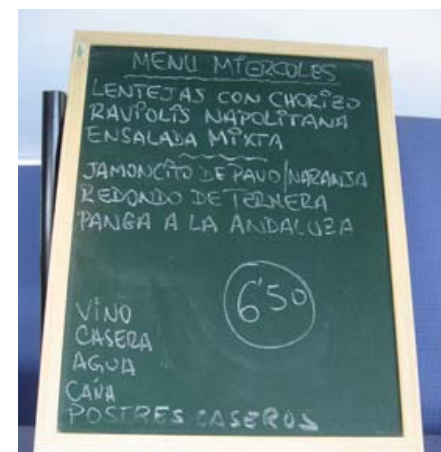 MENU MIERCOLES
LENTEJAS CON CHORIZO
RAVIOLIS NAPOLITANA
ENSALADA MIXTA
JAMONCITO DE PAVO/NARANJA
REDONDO DE TERNERA
PANGA A LA ANDALUZA
6'50
VINO
CASERA
AGUA
CAÑA
POSTRES CASEROS